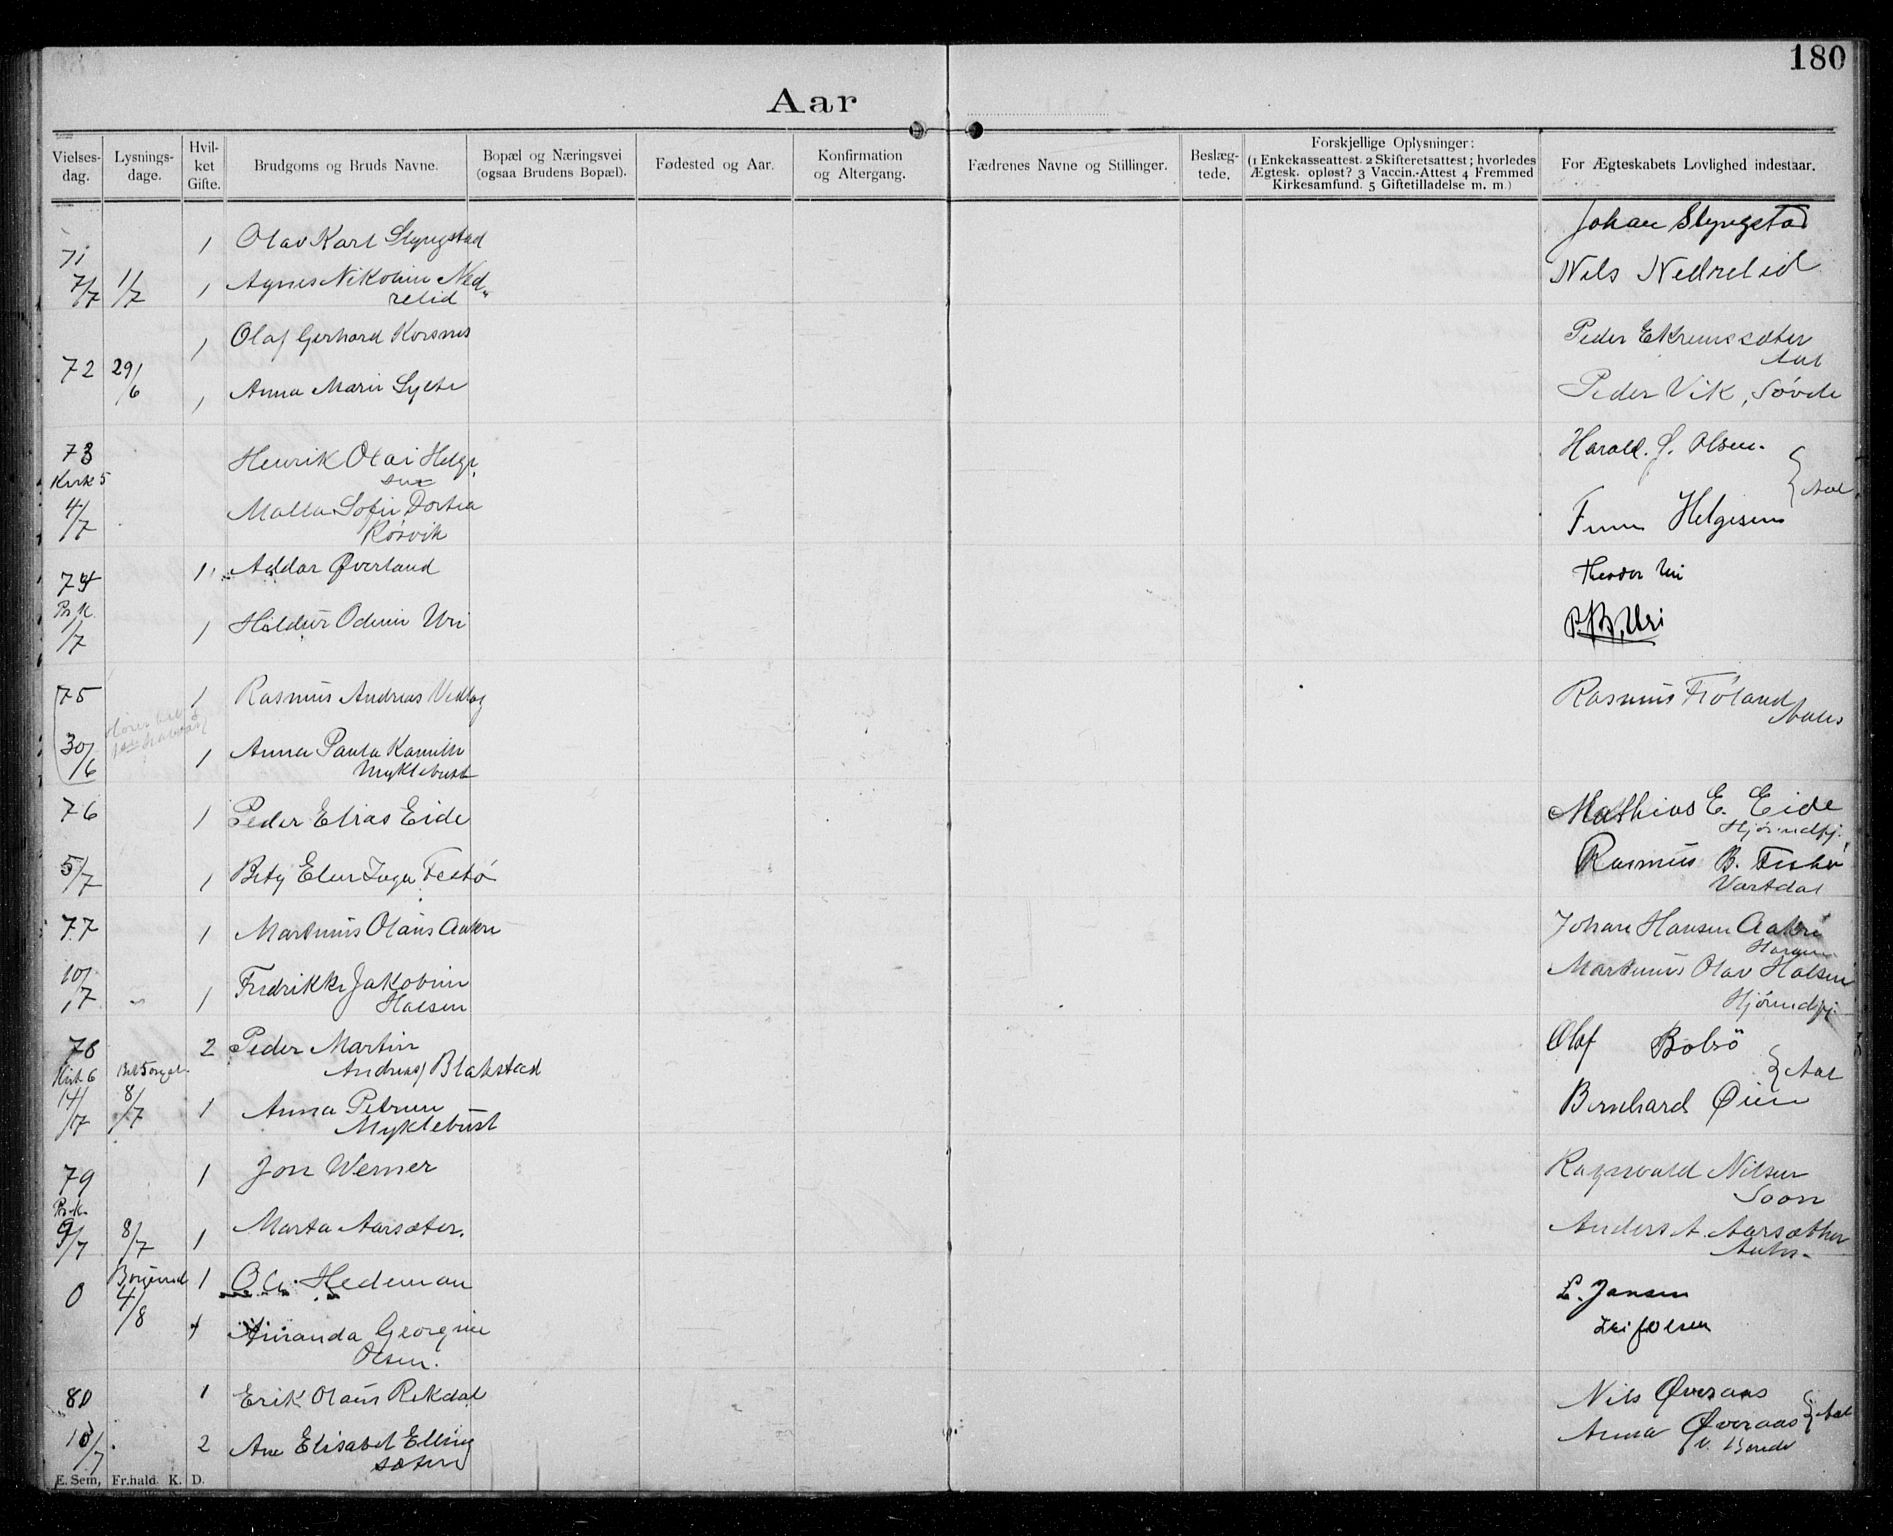 180
Aar
Vielses-dag. Lysnings-dage. Hvil-ket Gifte. Brudgoms og Bruds Navne. Bopæl og Næringsvei (ogsaa Brudens Bopæl). Fødested og Aar. Konfirmation og Altergang. Fædrenes Navne og Stillinger. Beslæg-tede. Forskjellige Oplysninger: (1 Enkekasseattest. 2 Skifteretsattest; hvorledes Ægtesk. opløst? 3 Vaccin.-Attest 4 Fremmed Kirkesamfund. 5 Giftetilladelse m. m.) For Ægteskabets Lovlighed indestaar.
71 1 Olav Karl Slyngstad Johan Slyngstad
7/7 1/7 1 Agnes Nikoline Ned- Nils Nedrelid
relid
1 Olaf Gerhard Korsnes Peder Ekremssæter
72 29/6 Aal
1 Anna Marie Sylte Peder Vik, Søvde
73 Henrik Olai Helge Harald. J. Olsen.
Kirk 5 sen
4/7 Malla Sofie Dortea Finn Helgesen } Aal
Rørvik
74 1 Addar Øverland Theodor Uri
1/7 1 Hildur Odine Uri P.B. Uri
75 1 Rasmus Andreas Vedlog Rasmus Frøland
Aales
30/6 1 Anna Paula Kamille
Myklebust
76 1 Peder Elias Eide Mathias E. Eide
Hjørundfj.
5/7 1 Bety Elen Inga Festø Rasmus B. Festø
Vartdal
77 1 Martinus Olaus Aakre Johan Hansen Aakre
10/7 " 1 Fredrikke Jakobine Martinus Olav Halsen
Halsen Hjørundfj.
78 2 Peder Martin Olaf Bolsö
Kirk 6 Andreas Blakstad } Aal
14/7 8/7 1 Anna Petrine Bernhard Øien
Myklebust
79 1 Jon Werner Ragnvald Nilsen
Soon
9/7 8/7 1 Marta Aarsæter. Anders A. Aarsæther
0 Borgerud 1 Ole Hedeman L. Jansen
4/8 1 Amanda Georgine Leif Olsen
Olsen.
80 1 Erik Olaus Rekdal Nils Øveraas
10/7 2 Ane Elisabet Elling Anna Øveraas } Aal
sæter
E. Sem, Fr.hald. K. D.